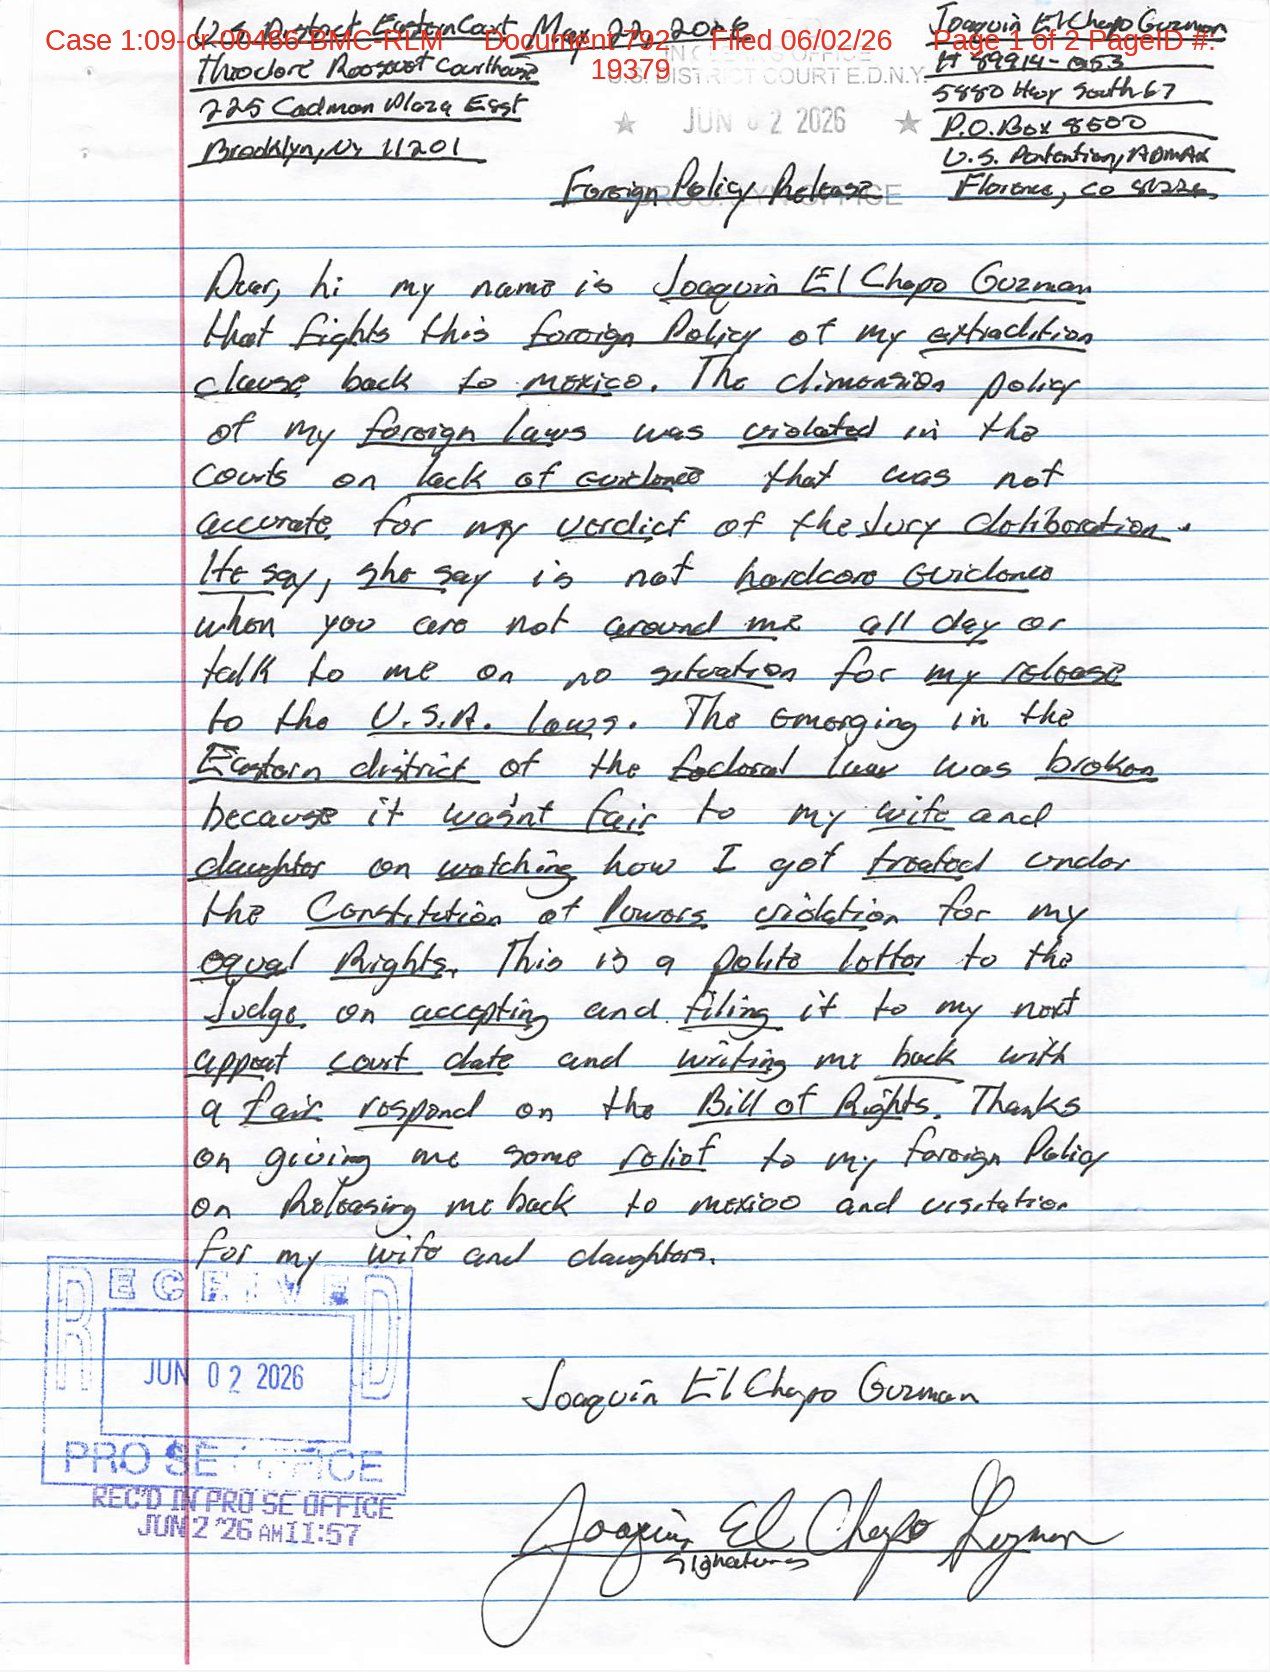 Case 1:09-cr-00466-BMC-RLM Document 792 Filed 06/02/26 Page 1 of 2 PageID #: 19379
U.S. District Eastern Court
Theodore Roosevelt Courthouse
225 Cadman Plaza East
Brooklyn, Ny 11201
May
Joaquin El Chapo Guzman
# 89914-053
5880 Hwy South 67
P.O. Box 8500
U.S. Penitentiary, ADMAX
Florence, CO
U.S. DISTRICT COURT E.D.N.Y.
★ JUN 02 2026 ★
Foreign Policy Release
Dear, hi my name is Joaquin El Chapo Guzman
that fights this foreign Policy of my extradition
clause back to mexico. The dimension policy
of my foreign laws was violated in the
courts on lack of evidence that was not
accurate for my verdict of the Jury deliberation.
He say, she say is not hardcore evidence
when you are not around me all day or
talk to me on no situation for my release
to the U.S.A. laws. The emerging in the
Eastern district of the federal law was broken
because it wasn't fair to my wife and
daughter on watching how I got treated under
the Constitution of Powers violation for my
equal Rights. This is a polite letter to the
Judge on accepting and filing it to my next
appeat court date and writing me back with
a fair respond on the Bill of Rights. Thanks
on giving me some relief to my foreign Policy
on Releasing me back to mexico and visitation
for my wife and daughters.
RECEIVED
JUN 02 2026
PRO SE OFFICE
REC'D IN PRO SE OFFICE
JUN 2 '26 AM11:57
Joaquin El Chapo Guzman
Joaquin El Chapo Guzman
Signatures